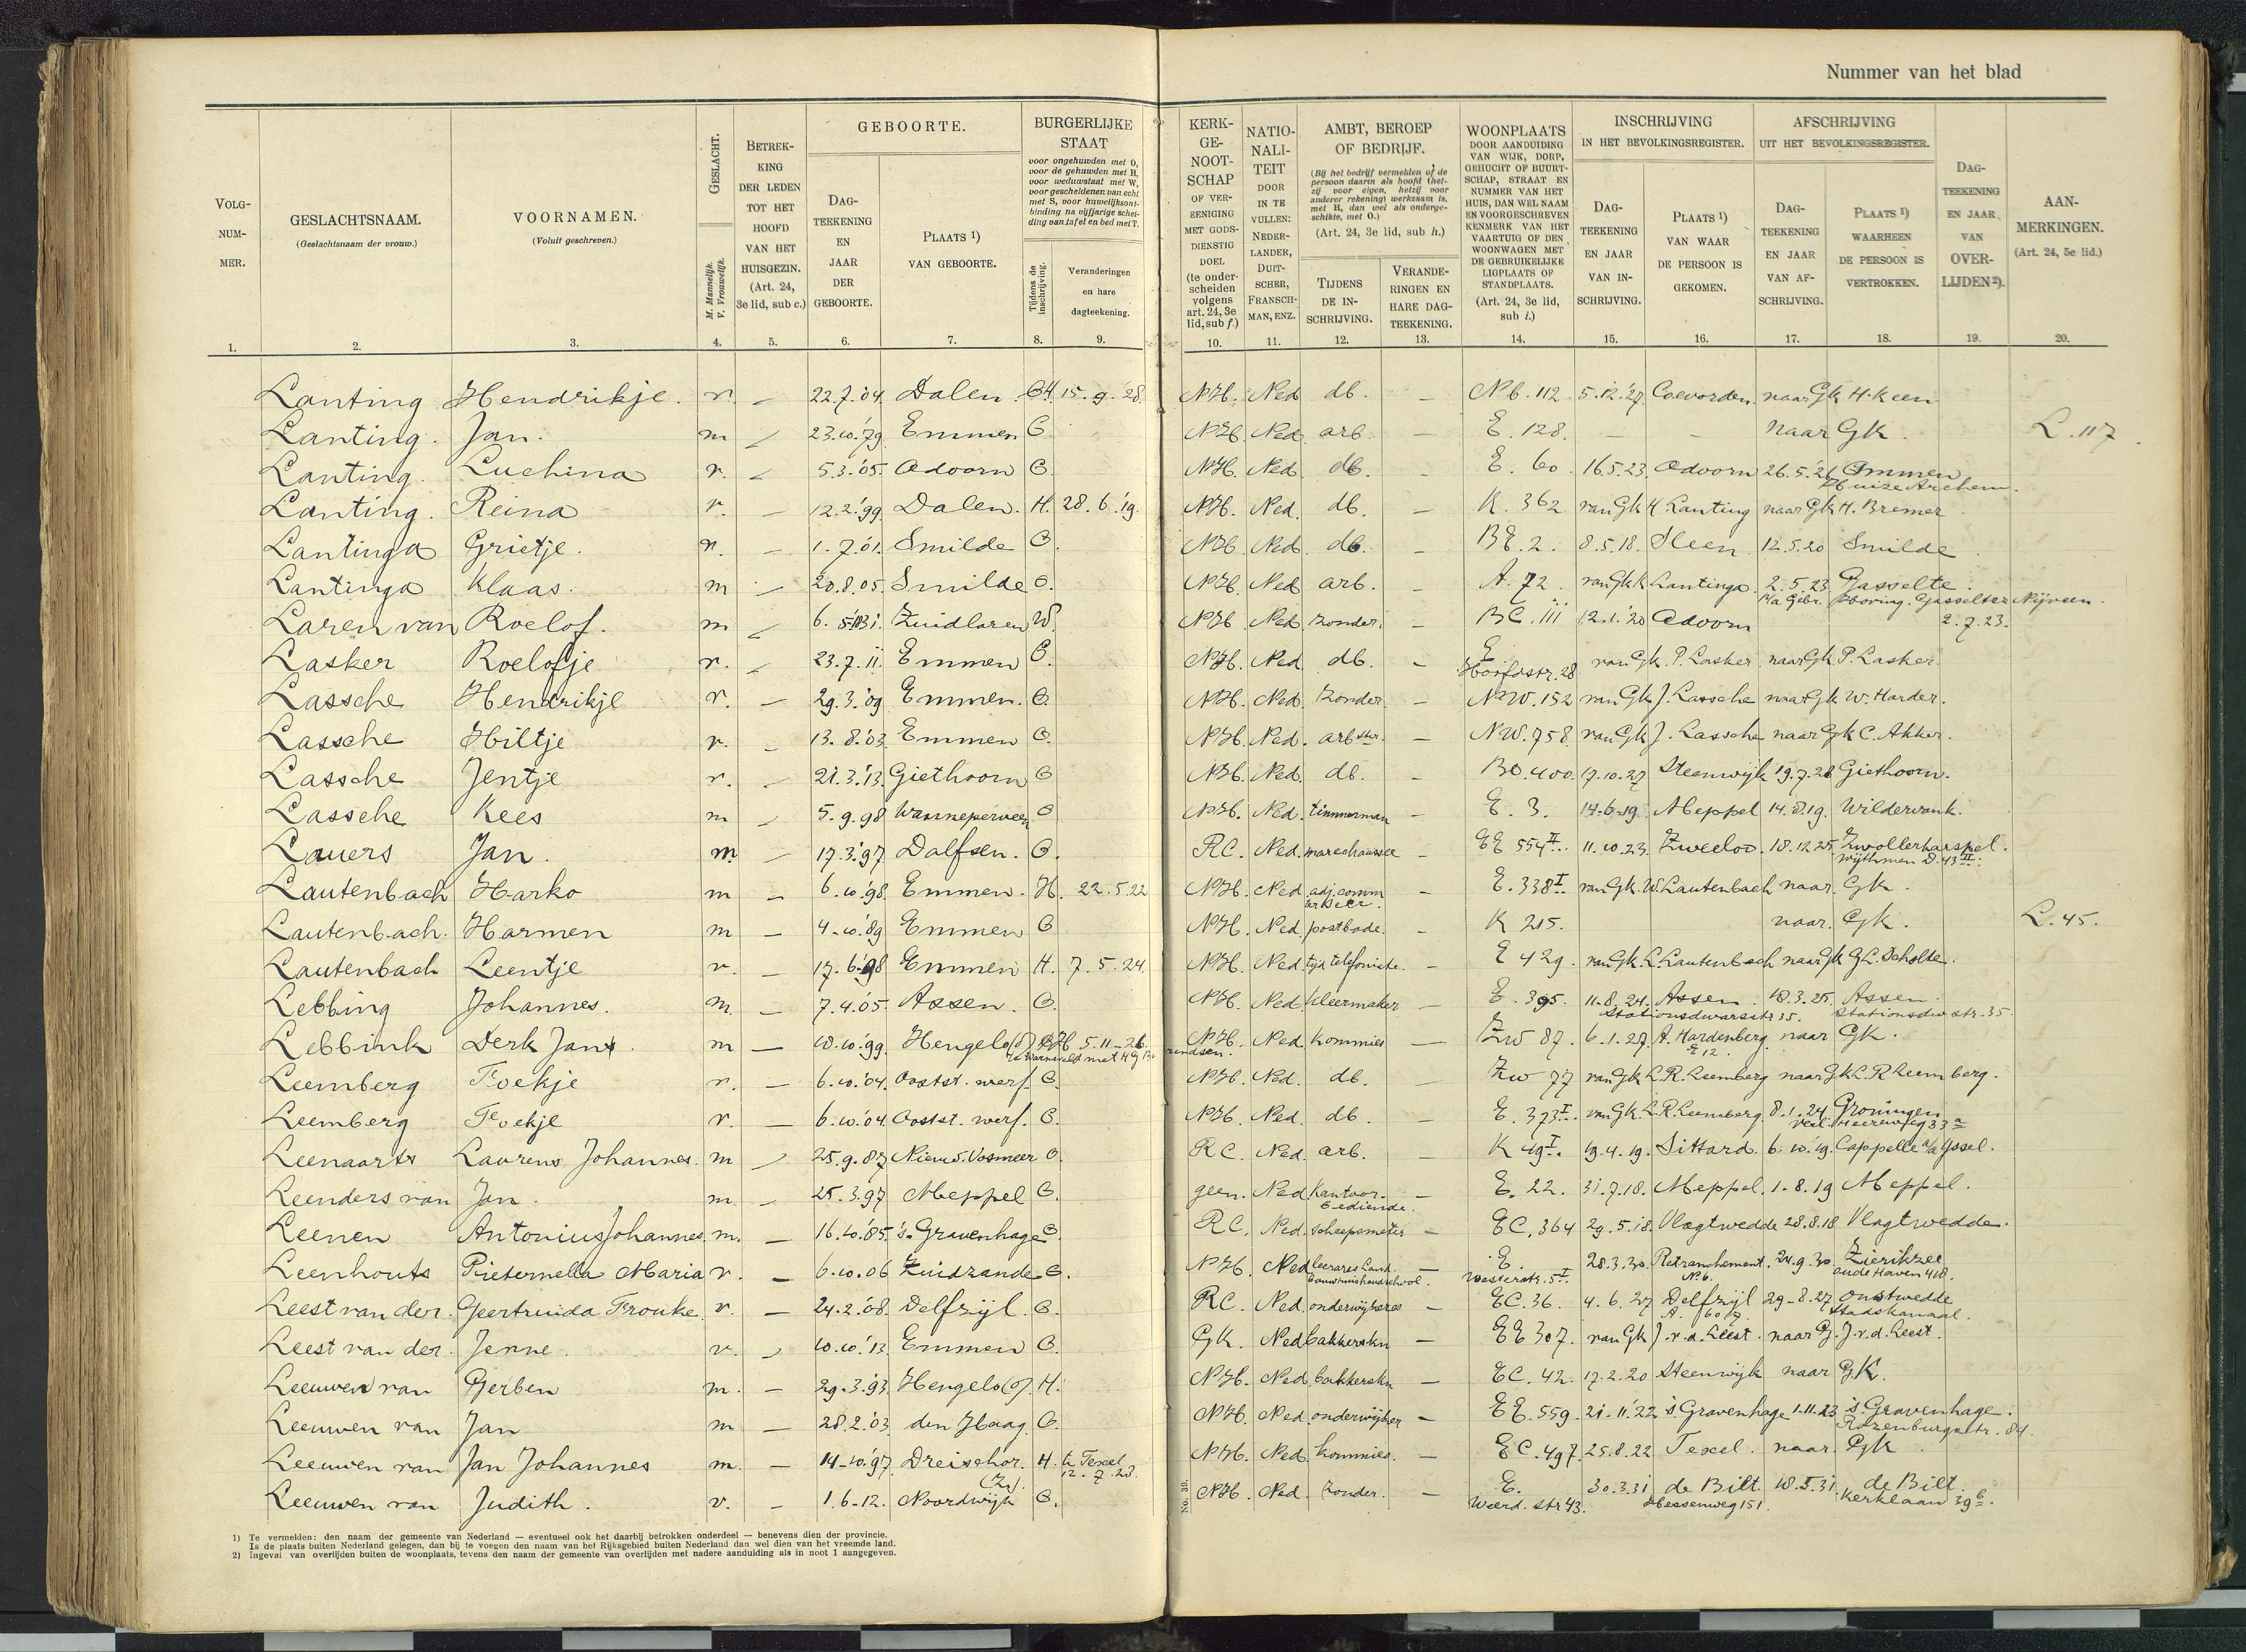 Nummer van het blad
VOLG-NUM-MER.
GESLACHTSNAAM.
(Geslachtsnaam der vrouw.)
VOORNAMEN.
(Voluit geschreven.)
GESLACHT.
M. Mannelijk.
V. Vrouwelijk.
BETREK-KING DER LEDEN TOT HET HOOFD VAN HET HUISGEZIN.
(Art. 24, 3e lid, sub c.)
GEBOORTE.
DAG-TEEKENING EN JAAR DER GEBOORTE.
PLAATS 1) VAN GEBOORTE.
BURGERLIJKE STAAT
voor ongehuwden met O, voor de gehuwden met H, voor weduwstaat met W, voor gescheidenen van echt met S, voor huwelijksontbinding na vijfjarige scheiding van tafel en bed met T.
Tijdens de inschrijving.
Veranderingen en hare dagteekening.
KERK-GE-NOOT-SCHAP OF VER-EENIGING MET GODS-DIENSTIG DOEL
(te onderscheiden volgens art. 24, 3e lid, sub f.)
NATIO-NALI-TEIT DOOR IN TE VULLEN: NEDER-LANDER, DUIT-SCHER, FRANSCH-MAN, ENZ.
AMBT, BEROEP OF BEDRIJF.
(Bij het bedrijf vermelden of de persoon daarin als hoofd (hetzij voor eigen, hetzij voor anderer rekening) werkzaam is, met H, dan wel als ondergeschikte, met O.)
(Art. 24, 3e lid, sub h.)
TIJDENS DE IN-SCHRIJVING.
VERANDE-RINGEN EN HARE DAG-TEEKENING.
WOONPLAATS DOOR AANDUIDING VAN WIJK, DORP, GEHUCHT OF BUURT-SCHAP, STRAAT EN NUMMER VAN HET HUIS, DAN WEL NAAM EN VOORGESCHREVEN KENMERK VAN HET VAARTUIG OF DEN WOONWAGEN MET DE GEBRUIKELIJKE LIGPLAATS OF STANDPLAATS.
(Art. 24, 3e lid, sub i.)
INSCHRIJVING IN HET BEVOLKINGSREGISTER.
DAG-TEEKENING EN JAAR VAN IN-SCHRIJVING.
PLAATS 1) VAN WAAR DE PERSOON IS GEKOMEN.
AFSCHRIJVING UIT HET BEVOLKINGSREGISTER.
DAG-TEEKENING EN JAAR VAN AF-SCHRIJVING.
PLAATS 1) WAARHEEN DE PERSOON IS VERTROKKEN.
DAG-TEEKENING EN JAAR VAN OVER-LIJDEN 2).
AAN-MERKINGEN.
(Art. 24, 5e lid.)
1. 2. 3. 4. 5. 6. 7. 8. 9. 10. 11. 12. 13. 14. 15. 16. 17. 18. 19. 20.
Lanting Hendrikje. v. — 22.7.'04. Dalen. H. 15.9.'28. NH. Ned db. — Nb. 112 5.12.'27. Coevorden. naar Gk H. Keen
Lanting. Jan. m — 23.10.'79 Emmen O NH. Ned. arb. — E. 128. — — naar GK. L. 117.
Lanting. Luchina v. — 5.3.'05. Odoorn O. NH. Ned. db. — E. 60. 16.5.23. Odoorn 26.5.'26 Ommen
Huize Archem.
Lanting. Reina v. — 12.2.'99. Dalen. H. 28.6.'19. NH. Ned. db. — K. 362 van Gk H Lanting naar Gk H. Bremer
Lantinga Grietje. v. — 1.7.'01. Smilde O. NH. Ned. db. — BE. 2. 8.5.18. Sleen. 12.5.20 Smilde
Lantinga Klaas. m — 20.8.05. Smilde O. NH. Ned arb. — A. 72. van Gk K Lantinga. 2.5.23. Gasselte.
p/a Gebr. Hoving. Gasselter Nijveen.
Laren van Roelof. m — 6. Zuidlaren W. NH. Ned. zonder. — BC. 111 12.1.'20 Odoorn 2.7.23.
Lasker Roelofje v. — 23.7.11. Emmen O. NH. Ned. db. — E
Hoofdstr. 28 van Gk. P. Lasker. naar Gk P. Lasker.
Lassche Hendrikje v. — 29.3.'09 Emmen. O. NH. Ned. zonder. — NW. 152 van Gk J. Lassche naar Gk W. Harder.
Lassche Hiltje v. — 13.8.'03. Emmen O. NH. Ned. arbster. — NW. 758. van Gk J. Lassche naar Gk C. Akker.
Lassche Jentje v. — 21.3.'13. Giethoorn O NH. Ned. db. — BO. 400. 17.10.27 Steenwijk 19.7.28 Giethoorn.
Lassche Kees m — 5.9.98 Wanneperveen O NH. Ned. timmerman — E. 3. 14-6-19. Meppel 14.8.19. Wildervank.
Lauers Jan. m. — 17.3.'97 Dalfsen. O. RC. Ned. marechaussee — EE 554 II. 11.10.23. Zweeloo. 18.12.25. Zwollerkarspel.
Wijthmen D. 43 II.
Lautenbach Harko m — 6.10.'98. Emmen. H. 22.5.22 NH. Ned. adj. comm — E. 338 I. van Gk. W. Lautenbach naar. Gk.
Lautenbach. Harmen m — 4-10.'89 Emmen O NH. Ned. postbode. — K 215. naar. Gk. L. 45.
Lautenbach Leentje v. — 17.6.'98 Emmen H. 7.5.24. NH. Ned. tijd telefoniste. — E 429. van Gk. L. Lautenbach naar Gk G L. Scholte.
Lebbing Johannes. m. — 7.4.'05. Assen. O. NH. Ned. kleermaker — E. 395. 11.8.24. Assen. 18.3.25. Assen.
Stationsdwarsstr 35. Stationsdw str. 35.
Lebbink Derk Jan. m — 10.10.'99. Hengelo H 5.11-26. NH. Ned. kommies — Zw 87. 6.1.27. A. Hardenberg. naar GK.
E 12.
Leemberg Foekje v. — 6.10.'04. Ootst. werf. O. NH. Ned. db. — Zw 77 van Gk L. R. Leemberg naar Gk L. R Leemberg.
Leemberg Foekje v. — 6.10.04. Ootst. werf. O. NH. Ned. db. — E. 373 I. van Gk. L. R. Leemberg. 8.1.24. Groningen
Leenaarts Laurens Johannes. m — 25.9.87 Nieuw Vosmeer O. RC. Ned. arb. — K 49 I. 19.4.19. Sittard. 6.10.'19. Cappelle a/d Yssel.
Leenders van Jan. m — 25.3.97 Meppel O. geen. Ned. kantoor-
bediende. — E. 22. 31.7.18. Meppel. 1.8.19 Meppel.
Leenen Antonius Johannes. m. — 16.10.'85. 's-Gravenhage O. RC. Ned. scheepsmeter — EC. 364 29.5.18. Vlagtwedde 28.8.18 Vlagtwedde.
Leenhouts Pieternella Maria v. — 6.10.06 Zuidzande O. NH. Ned leerares Land
bouwhuishoudschool. E.
Westerstr. 5 I. 28.3.30. Retranchement. 24.9.30. Zierikzee
No. 6. oude Haven 418.
Leest van der. Geertruida Frouke. v. — 24.2.'08. Delfzijl. O. RC. Ned. onderwijzeres — EC. 36. 4.6.27 Delfzijl 29-8.27 Onstwedde
Stadskanaal.
Leest van der. Jenne. v. — 10.10.'13. Emmen O. GK. Ned bakkerskn — EE 307. van Gk J. v. d. Leest. naar G. J. v. d. Leest.
Leeuwen van Gerben m. — 29.3.'93. Hengelo (O). H. NH. Ned. bakkerskn — EC. 42. 17.2.20 Steenwijk naar GK.
Leeuwen van Jan m — 28.2.'03 den Haag. O. NH. Ned. onderwijzer — EE. 559. 21-11.'22 's Gravenhage 1-11.23 's Gravenhage.
Rozenburgstr. 84.
Leeuwen van Jan Johannes m. — 14-10.'97. Dreischor. H. te Texel
(Z). 12.7.23. NH. Ned. kommies. — EC. 497. 25.8.22 Texel. naar. Gk.
Leeuwen van Judith. v. — 1.6-12. Noordwijk O. NH. Ned. zonder. — E.
Weerd. str 43. 30.3.31 de Bilt. 18.5.31. de Bilt.
Hessenweg 151. Kerklaan 39
No. 30.
1) Te vermelden: den naam der gemeente van Nederland — eventueel ook het daarbij betrokken onderdeel — benevens dien der provincie.
Is de plaats buiten Nederland gelegen, dan bij te voegen den naam van het Rijksgebied buiten Nederland dan wel dien van het vreemde land.
2) Ingeval van overlijden buiten de woonplaats, tevens den naam der gemeente van overlijden met nadere aanduiding als in noot 1 aangegeven.